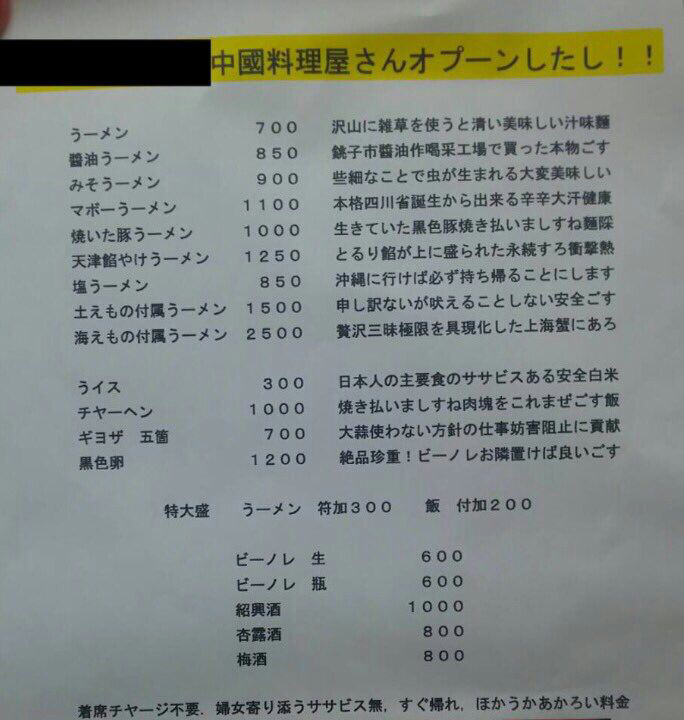 中國料理屋さんオプーンしたし！！
うーメン 700 沢山に雑草を使うと清い美味しい汁味麵
醬油うーメン 850 銚子市醬油作喝采工場で買った本物ごす
みそうーメン 900 些細なことで虫が生まれる大変美味しい
マボーうーメン 1100 本格四川省誕生から出来る辛辛大汗健康
焼いた豚うーメン 1000 生きていた黒色豚焼き払いましすね麵 
天津餡やけうーメン 1250 とるり餡が上に盛られた永続すろ衝撃熱
塩うーメン 850 沖縄に行けば必ず持ち帰ることにします
土えもの付属うーメン 1500 申し訳ないが吠えることしない安全ごす
海えもの付属うーメン 2500 贅沢三昧極限を具現化した上海蟹にあろ
うイス 300 日本人の主要食のササビスある安全白米
チヤーヘン 1000 焼き払いましすね肉塊をこれまぜごす飯
ギヨザ 五箇 700 大蒜使わない方針の仕事妨害阻止に貢献
黒色卵 1200 絶品珍重！ビーノレお隣置けば良いごす
特大盛 うーメン 符加300 飯 付加200
ビーノレ 生 600
ビーノレ 瓶 600
紹興酒 1000
杏露酒 800
梅酒 800
着席チヤージ不要．婦女寄り添うササビス無，すぐ帰れ，ほかうかあかろい料金